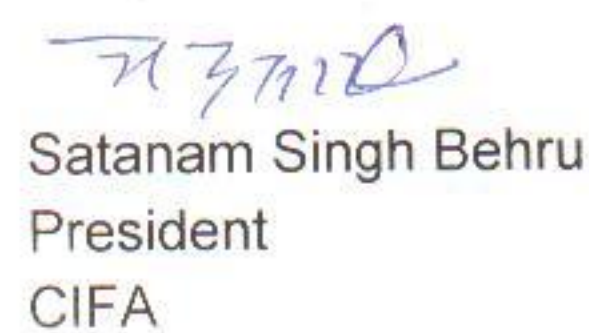 Satanam Singh Behru
President
CIFA